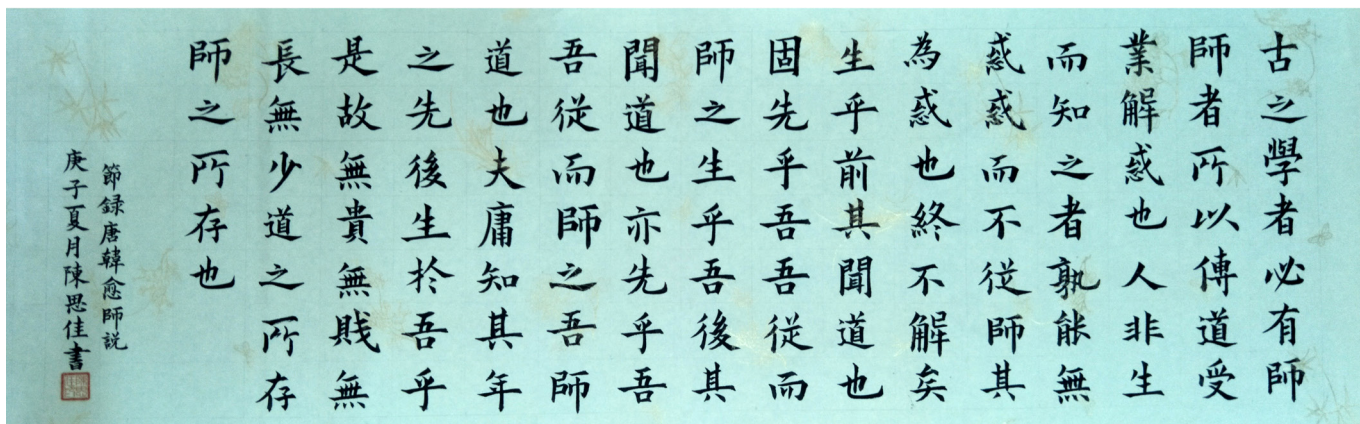 古之學者必有師
師者所以傳道受
業解惑也人非生
而知之者孰能無
惑惑而不從師其
為惑也終不解矣
生乎前其聞道也
固先乎吾吾從而
師之生乎吾後其
聞道也亦先乎吾
吾從而師之吾師
道也夫庸知其年
之先後生於吾乎
是故無貴無賤無
長無少道之所存
師之所存也
節録唐韓愈師説
庚子夏月陳思佳書